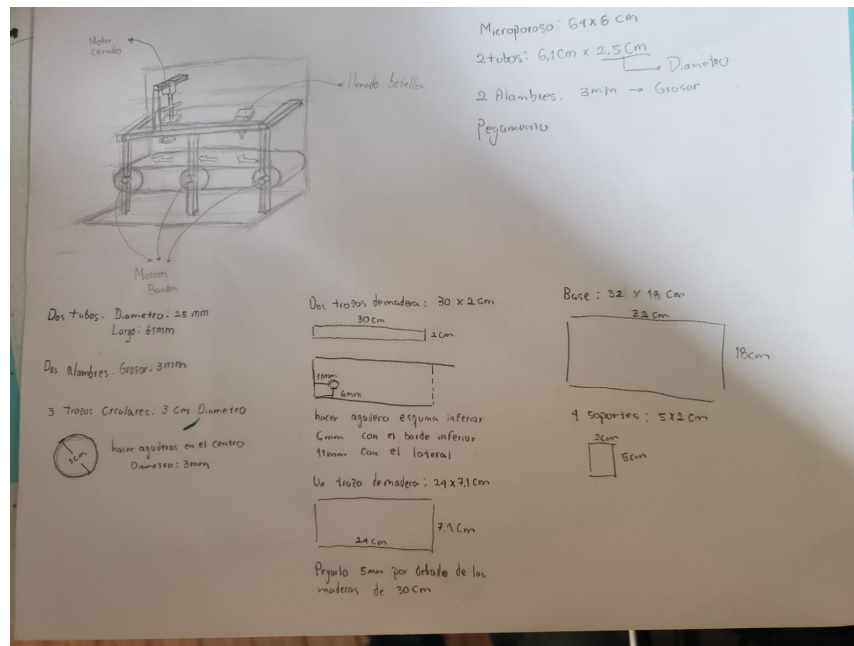 Microporoso: 61x6 cm
2 tubos: 6,1cm x 2.5 cm
Diametro
2 Alambres. 3mm → Grosor
Pegamento
Motor
llenado botella
Motores
Banda
Dos tubos. Diametro: 25 mm
Largo: 61mm
Dos alambres. Grosor: 3mm
3 trozos Circulares: 3 cm Diametro
3cm
hacer agujeros en el centro
Diametro: 3mm
Dos trozos de madera: 30 x 2 cm
30 cm
2 cm
11mm
6mm
hacer agujero esquina inferior
6mm con el borde inferior
11mm con el lateral
Un trozo de madera: 24 x 7.1 cm
7.1 cm
24 cm
Pegarlo 5mm por debado de las
maderas de 30 cm
Base: 32 x 18 cm
32 cm
18cm
4 soportes: 5x2 cm
2cm
5cm